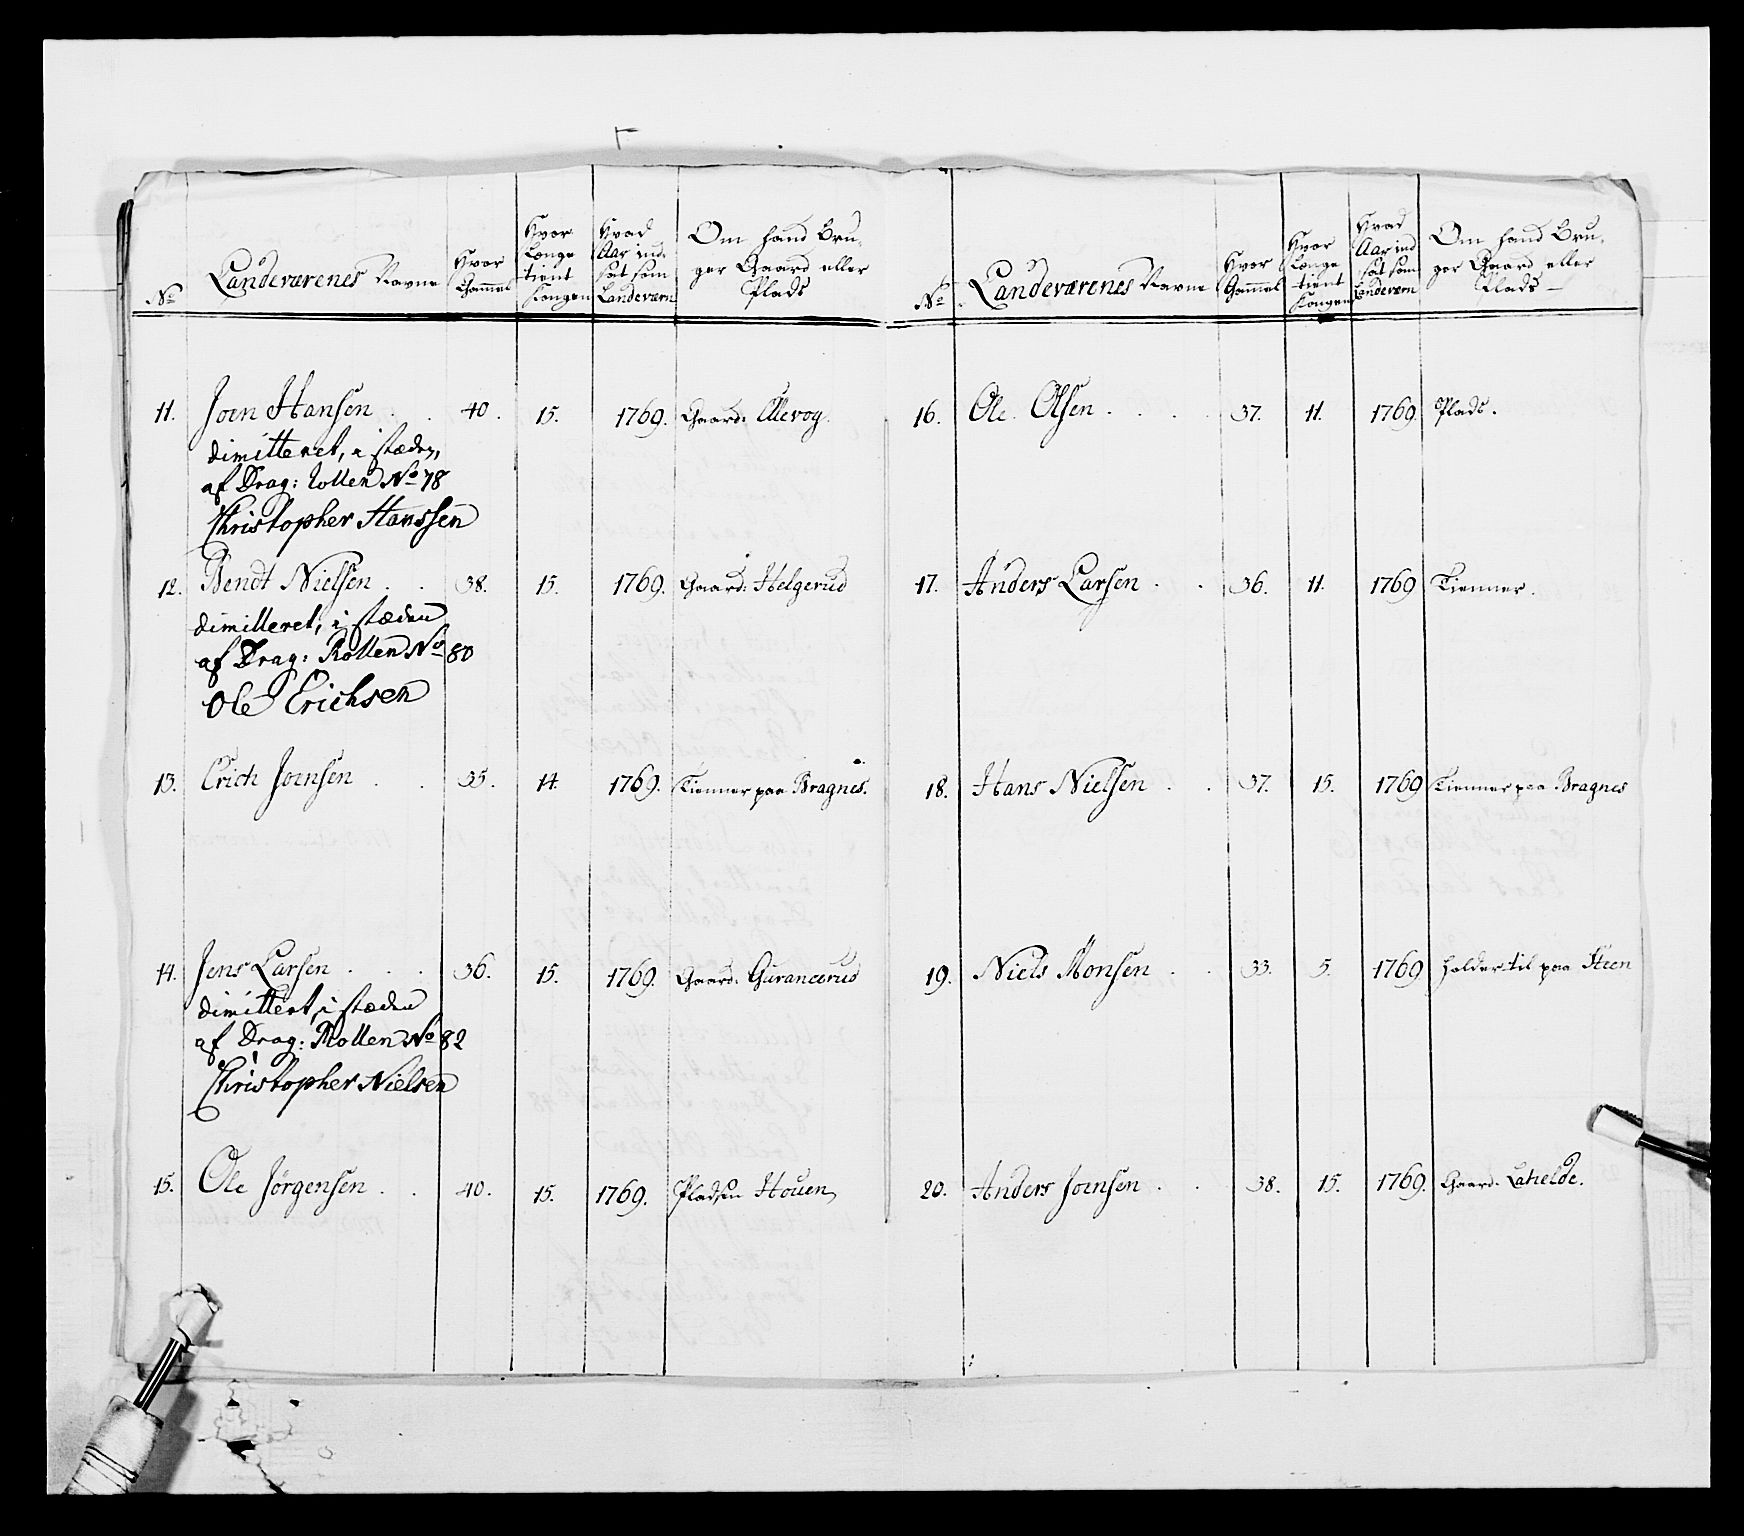 No
Landeværenes Navne
Hvor
Gammel
Hvor
Længe
tient
Kongen
Hvad
Aar ind
sat som
Landeværn
Om hand Bru-
ger Gaard eller
Plads
11. Joen Hansen . . 40. 15. 1769. Gaard: Ullevog.
dimitteret, i stæden,
af Drag: Rollen No 78
Christopher Hanssen
12. Bendt Nielsen . . 38. 15. 1769. Gaard: Helgerud
dimitteret, i stæden
af Drag: Rollen No 80
Ole Erichsen
13. Erich Joensen . . 35. 14. 1769. Tienner paa Bragnes.
14. Jens Larsen . . . 36. 15. 1769. Gaard: Gurancerud
dimittert, i stæden
af Drag: Rollen No 82
Christopher Nielsen
15. Ole Jörgensen . . 40. 15. 1769. Pladsen Houen
No
Landeværenes Navne
Hvor
Gammel
Hvor
Længe
tient
Kongen
Hvad
Aar ind
sat som
Landeværn
Om hand Bru-
ger Gaard eller
Plads
16. Ole Olsen . . . . 37. 11. 1769 Plads.
17. Anders Larsen . . 36. 11. 1769 Tienner.
18. Hans Nielsen . . 37. 15. 1769 Tienner paa Bragnes
19. Niels Monsen . . 33. 5. 1769 holder til paa Steen
20. Anders Joensen . . 38. 15. 1769. Gaard: